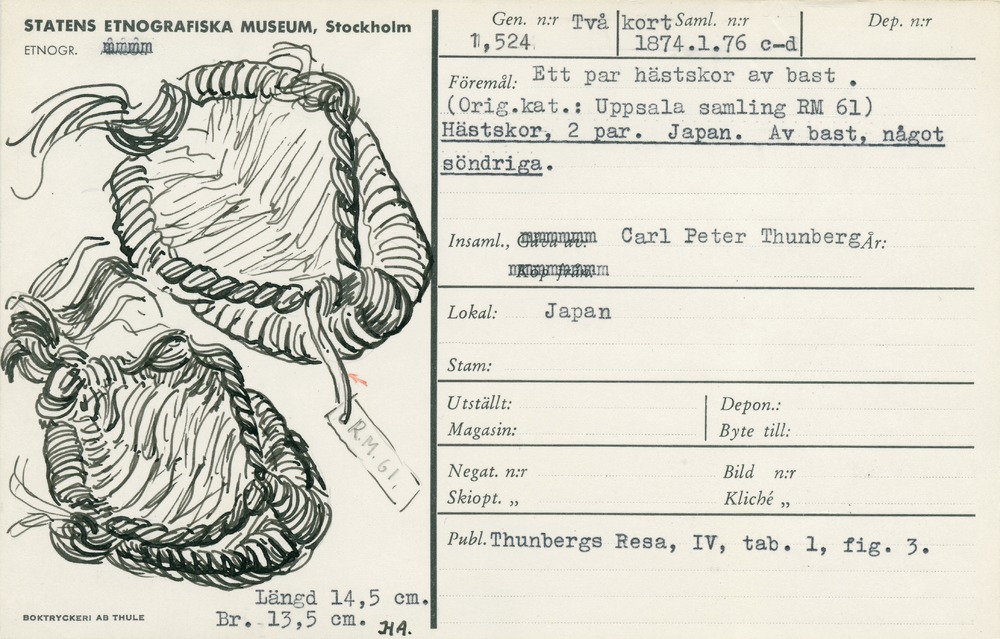 STATENS ETNOGRAFISKA MUSEUM, Stockholm
ETNOGR.
R.M. 61.
Längd 14,5 cm.
Br. 13,5 cm. HA.
BOKTRYCKERI AB THULE
Gen. n:r Två kort Saml. n:r Dep. n:r
11,524 1874.1.76 c-d
Föremål: Ett par hästskor av bast .
(Orig.kat.: Uppsala samling RM 61)
Hästskor, 2 par. Japan. Av bast, något
söndriga.
Insaml., Gåva av: Carl Peter Thunberg År:
Köp från:
Lokal: Japan
Stam:
Utställt: Depon.:
Magasin: Byte till:
Negat. n:r Bild n:r
Skiopt. „ Kliché „
Publ. Thunbergs Resa, IV, tab. 1, fig. 3.